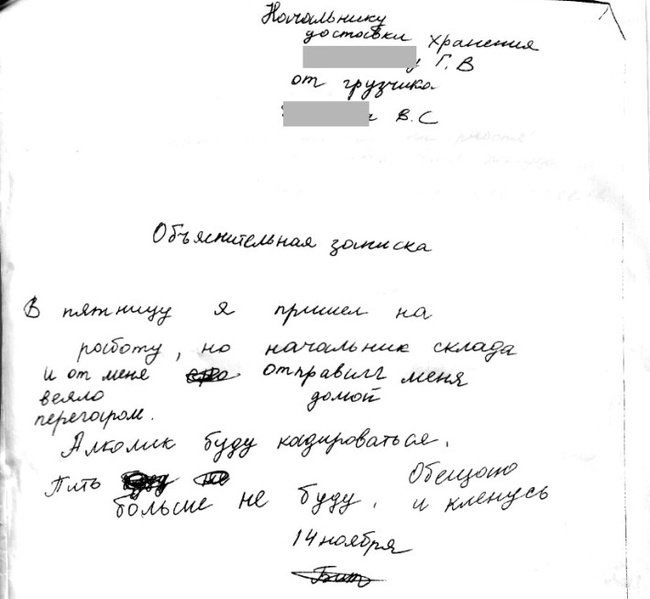 Начальнику
доставки хранения
у Г.В
от грузчика
В.С
Объяснительная записка
В пятницу я пришел на
работу, но начальник склада
и от меня отправилг меня
веяло домой
перегаром.
Алколик буду кадироваться.
Пить Обещаю
больше не буду. и кленусь
14 ноября